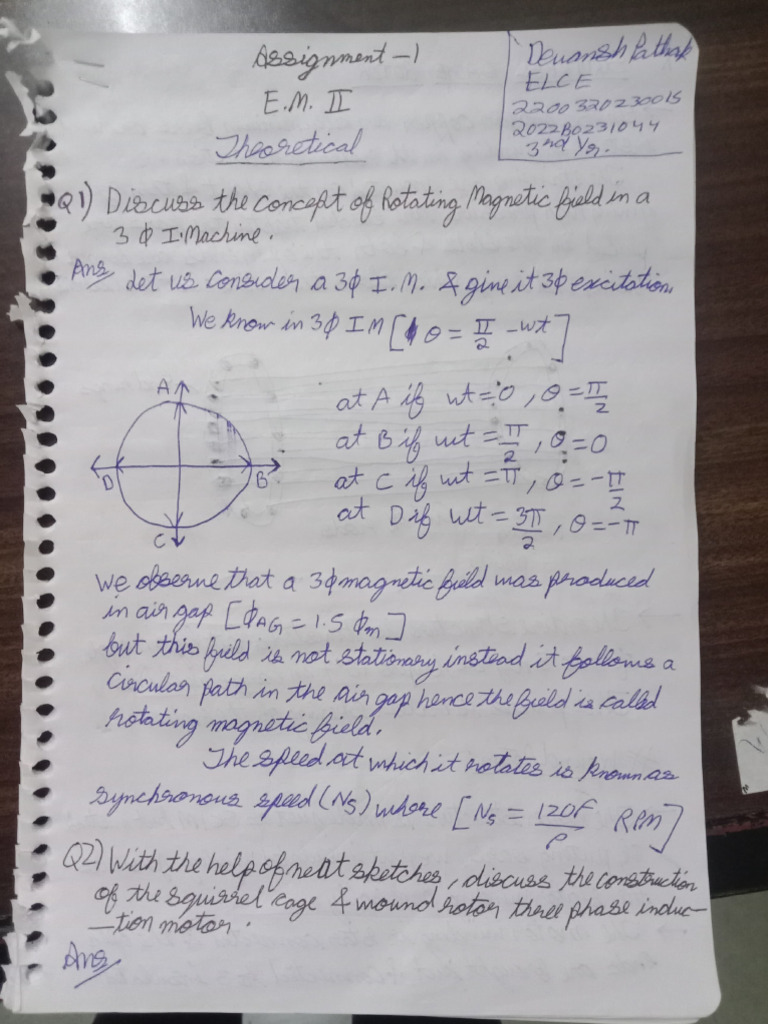 Assignment-1
E.M. II
Theoretical
Devansh Pathak
ELCE
2200320230015
2022B0231044
3rd Yr.
Q1) Discuss the concept of Rotating Magnetic field in a
3 Φ I.Machine.
Ans Let us consider a 3Φ I.M. & give it 3Φ excitation.
We know in 3Φ IM [θ = π/2 - wt]
A
D
B
C
at A if wt=0, θ=π/2
at B if wt=π/2, θ=0
at C if wt=π, θ=-π/2
at D if wt=3π/2, θ=-π
We observe that a 3Φ magnetic field was produced
in air gap [ΦAG = 1.5 Φm]
but this field is not stationary instead it follows a
circular path in the air gap hence the field is called
rotating magnetic field.
The speed at which it rotates is known as
synchronous speed (Ns) where [Ns = 120F/P RPM]
Q2) With the help of neat sketches, discuss the construction
of the squirrel cage & wound rotor three phase induc-
-tion motor.
Ans